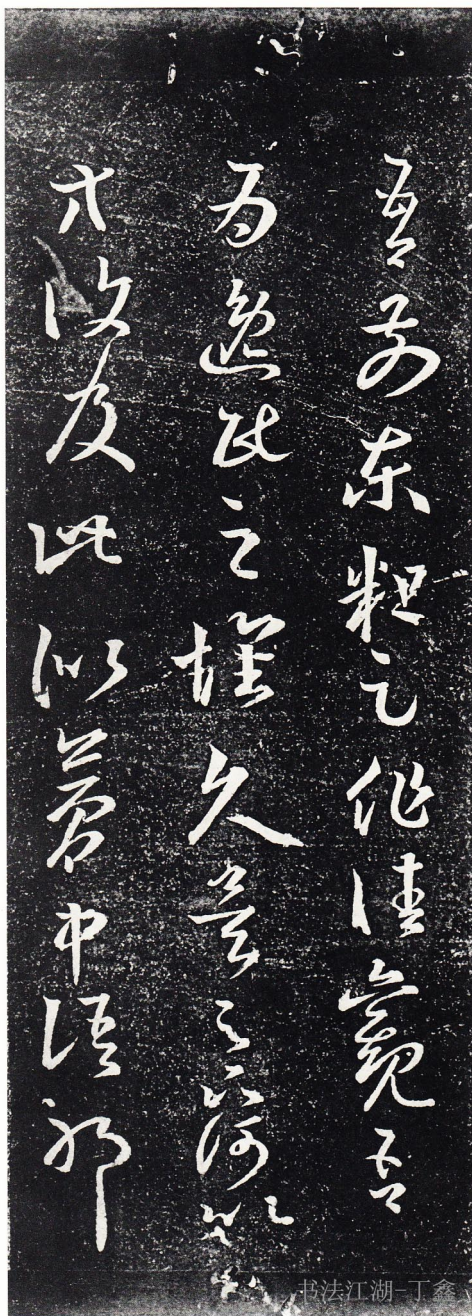 吾前東粗足作佳觀吾
為逸民之懷久矣足下何以
方復及此似夢中語耶
书法江湖-丁鑫